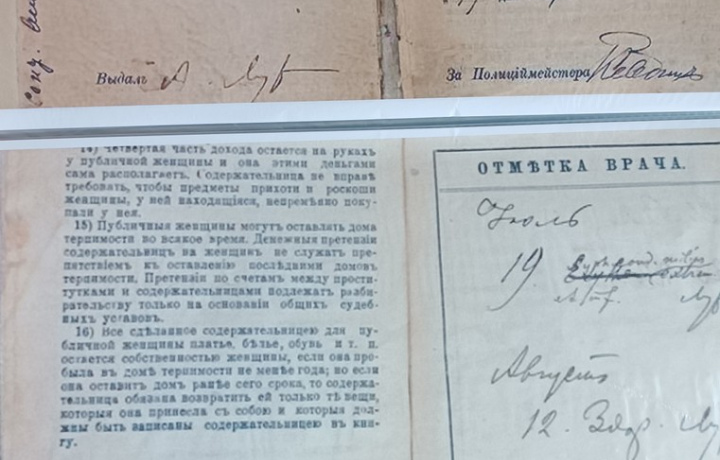 Выдалъ
За Полицiймейстора
14) Четвертая часть дохода остается на рукахъ
у публичной женщины и она этими деньгами
сама располагаетъ. Содержательница не вправѣ
требовать, чтобы предметы прихоти и роскоши
женщины, у ней находящiяся, непремѣнно поку-
пали у нея.
15) Публичныя женщины могутъ оставлять дома
терпимости во всякое время. Денежныя претензiи
содержательницъ на женщинъ не служатъ пре-
пятствiемъ къ оставленiю послѣдними домовъ
терпимости. Претензiи по счетамъ между прости-
тутками и содержательницами подлежатъ разби-
рательству только на основанiи общихъ судеб-
ныхъ уставовъ.
16) Все сдѣланное содержательницею для пу-
бличной женщины платье, бѣлье, обувь и т. п.
остается собственностью женщины, если она про-
была въ домѣ терпимости не менѣе года; но если
она оставитъ домъ ранѣе сего срока, то содержа-
тельница обязана возвратить ей только тѣ вещи,
которыя она принесла съ собою и которыя дол-
жны быть записаны содержательницею въ кни-
гу.
ОТМѢТКА ВРАЧА.
Iюль
19
Августъ
12. Здор.